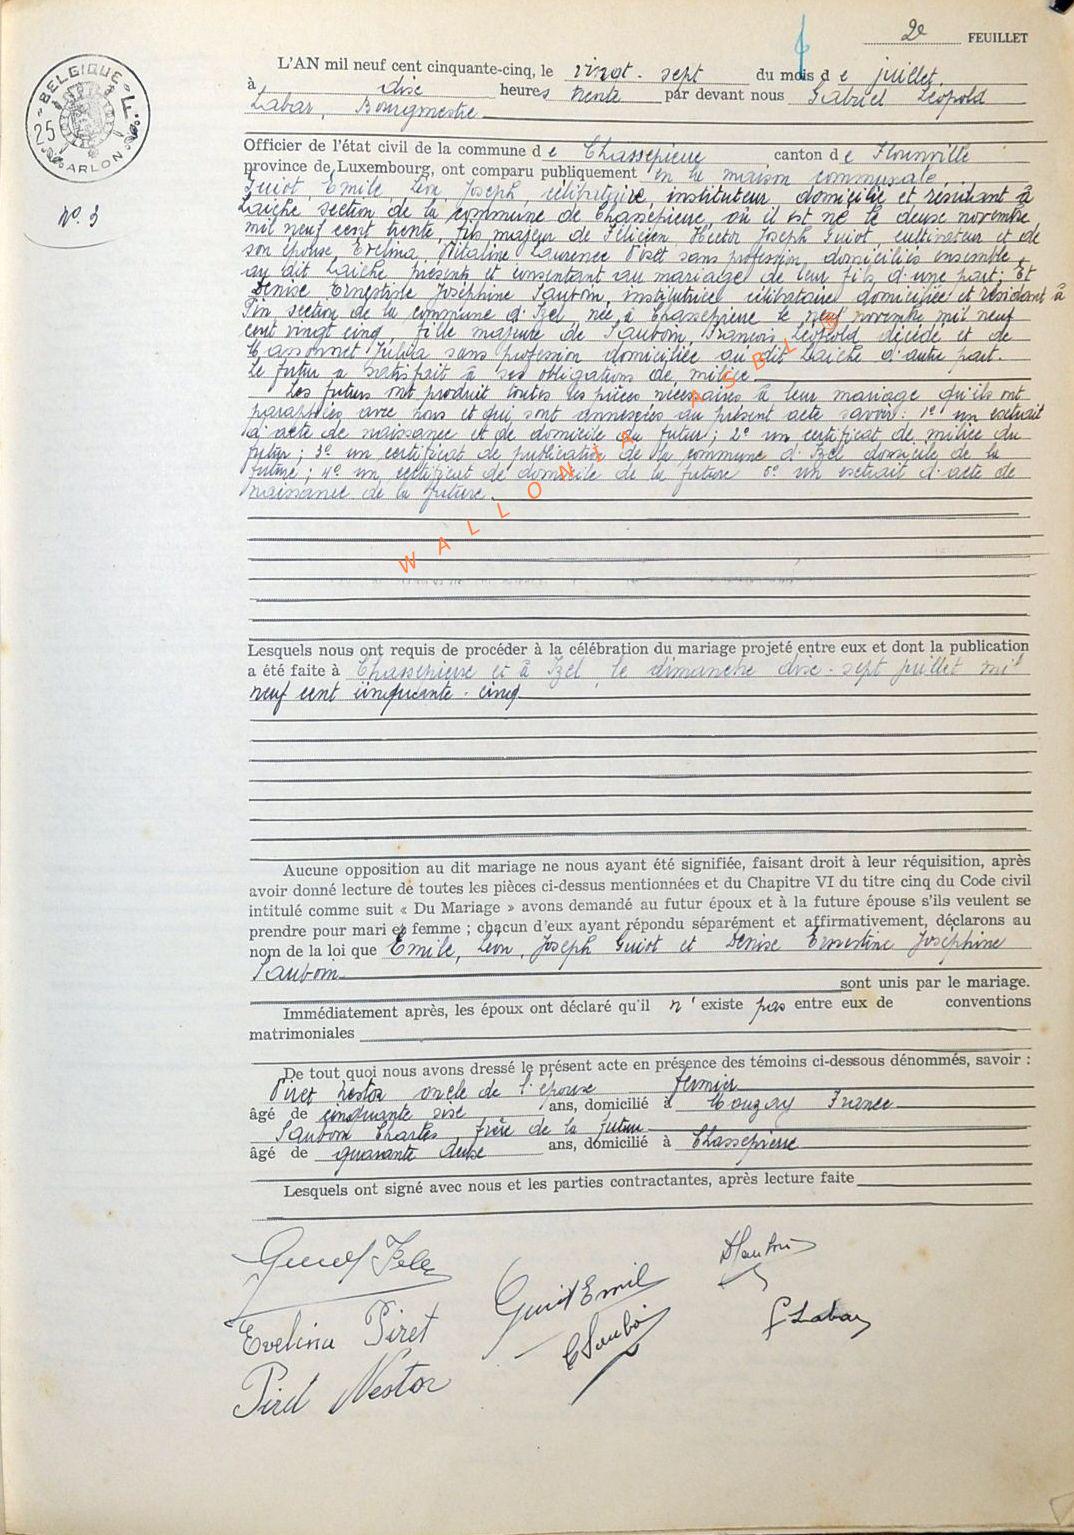 2e FEUILLET
BELGIQUE
25 F
ARLON
No. 3
L'AN mil neuf cent cinquante-cinq, le vingt-sept du mois de juillet
à dix heures trente par devant nous Gabriel Léopold
Labar, Bourgmestre
Officier de l'état civil de la commune de Chassepierre canton de Florenville
province de Luxembourg, ont comparu publiquement en la maison communale,
Guiot, Emile, Léon, Joseph, célibataire, instituteur, domicilié et résidant à
Laiche section de la commune de Chassepierre, où il est né le douze novembre
mil neuf cent trente, fils majeur de Félicien Hector Joseph Guiot, cultivateur et de
son épouse, Evelina, Vitaline Laurence Piret sans profession, domiciliés ensemble
au dit Laiche présents et consentant au mariage de leur fils d'une part. Et
Denise Ernestine Joséphine Sauboin, institutrice célibataire domiciliée et résidant à
Pin section de la commune d'Izel née à Chassepierre le neuf novembre mil neuf
cent vingt cinq fille majeure de Sauboin, François Léopold décédé et de
sans profession domiciliée au dit Laiche d'autre part.
Le futur a satisfait à ses obligations de milice
Les futurs ont produit toutes les pièces nécessaires à leur mariage qu'ils ont
paraphées avec nous et qui sont annexées au présent acte savoir : 1° un extrait
d'acte de naissance et de domicile du futur ; 2° un certificat de milice du
futur ; 3° un certificat de publication de la commune d'Izel domicile de la
future ; 4° un certificat de domicile de la future 5° un extrait d'acte de
naissance de la future.
WALLONIA ASBL ®
Lesquels nous ont requis de procéder à la célébration du mariage projeté entre eux et dont la publication
a été faite à Chassepierre et à Izel, le dimanche dix-sept juillet mil
neuf cent cinquante-cinq
Aucune opposition au dit mariage ne nous ayant été signifiée, faisant droit à leur réquisition, après
avoir donné lecture de toutes les pièces ci-dessus mentionnées et du Chapitre VI du titre cinq du Code civil
intitulé comme suit « Du Mariage » avons demandé au futur époux et à la future épouse s'ils veulent se
prendre pour mari et femme ; chacun d'eux ayant répondu séparément et affirmativement, déclarons au
nom de la loi que Emile, Léon, Joseph Guiot et Denise Ernestine Joséphine
Sauboin
sont unis par le mariage.
Immédiatement après, les époux ont déclaré qu'il n'existe pas entre eux de conventions
matrimoniales
De tout quoi nous avons dressé le présent acte en présence des témoins ci-dessous dénommés, savoir :
Piret Nestor oncle de l'épouse fermier
âgé de cinquante six ans, domicilié à Mouzay France
Sauboin Charles, frère de la future
âgé de quarante deux ans, domicilié à Chassepierre
Lesquels ont signé avec nous et les parties contractantes, après lecture faite
Evelina Piret
Guiot Emil
C Sauboi
G Labar
Piret Nestor